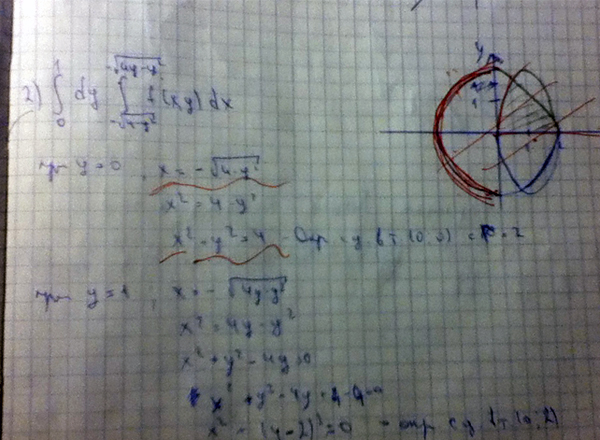 2) ∫₀¹ dy ∫_{-√4-y²}^{-√4y-y²} f(x,y) dx
при y=0, x = -√4-y²
x² = 4-y²
x² - y² = 4 - Окр с ц. в т (0,0)
при y=1, x = -√4y-y²
x² = 4y-y²
x² + y² - 4y = 0
x² + y² - 4y + 4 - 4 = 0
x² - (y-2)² = 0 - окр с ц. в т (0,2)
y